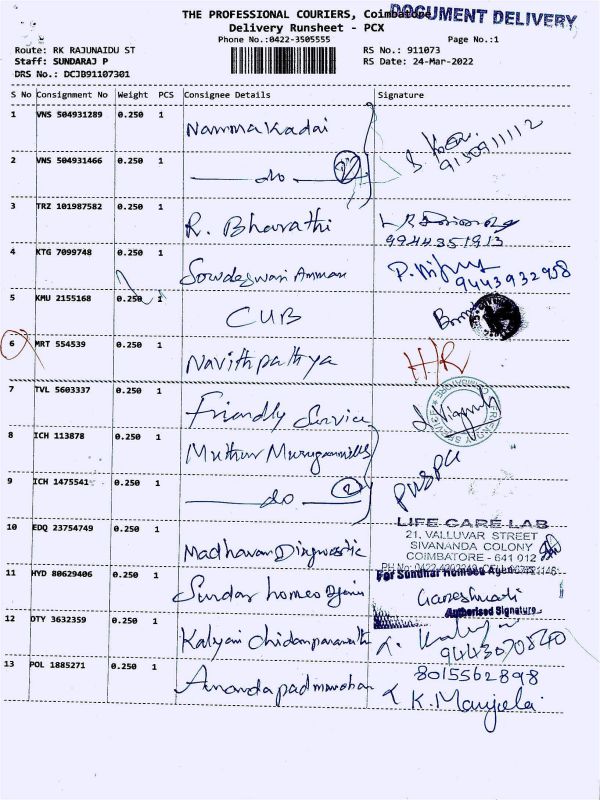 THE PROFESSIONAL COURIERS, Coimbatore
DOCUMENT DELIVERY
Delivery Runsheet - PCX
Phone No.:0422-3505555
Page No.:1
Route: RK RAJUNAIDU ST
RS No.: 911073
Staff: SUNDARAJ P
RS Date: 24-Mar-2022
DRS No.: DCJB91107301
S No Consignment No Weight PCS Consignee Details Signature
1 VNS 504931289 0.250 1 Namma Kadai
9150911112
2 VNS 504931466 0.250 1 do 2
3 TRZ 101987582 0.250 1 R. Bharathi
9944351913
4 KTG 7099748 0.250 1 Sowdeswari Amman
9443932958
5 KMU 2155168 0.250 1 CUB
6 MRT 554539 0.250 1 Navithpathya
7 TVL 5603337 0.250 1 Friendly Service
8 ICH 113878 0.250 1 Muthur Muruganmills
9 ICH 1475541 0.250 1 do 2
LIFE CARE LAB
21, VALLUVAR STREET
SIVANANDA COLONY
COIMBATORE - 641 012
10 EDQ 23754749 0.250 1 Madhavan Diagnostic
For Sundhar Homoeo
11 HYD 80629406 0.250 1 Sundar homeo
Ganeshwari
Authorised Signature
12 OTY 3632359 0.250 1 Kalyani
9443070840
13 POL 1885271 0.250 1 Anandapadmanaban
8015562898
K. Manjula